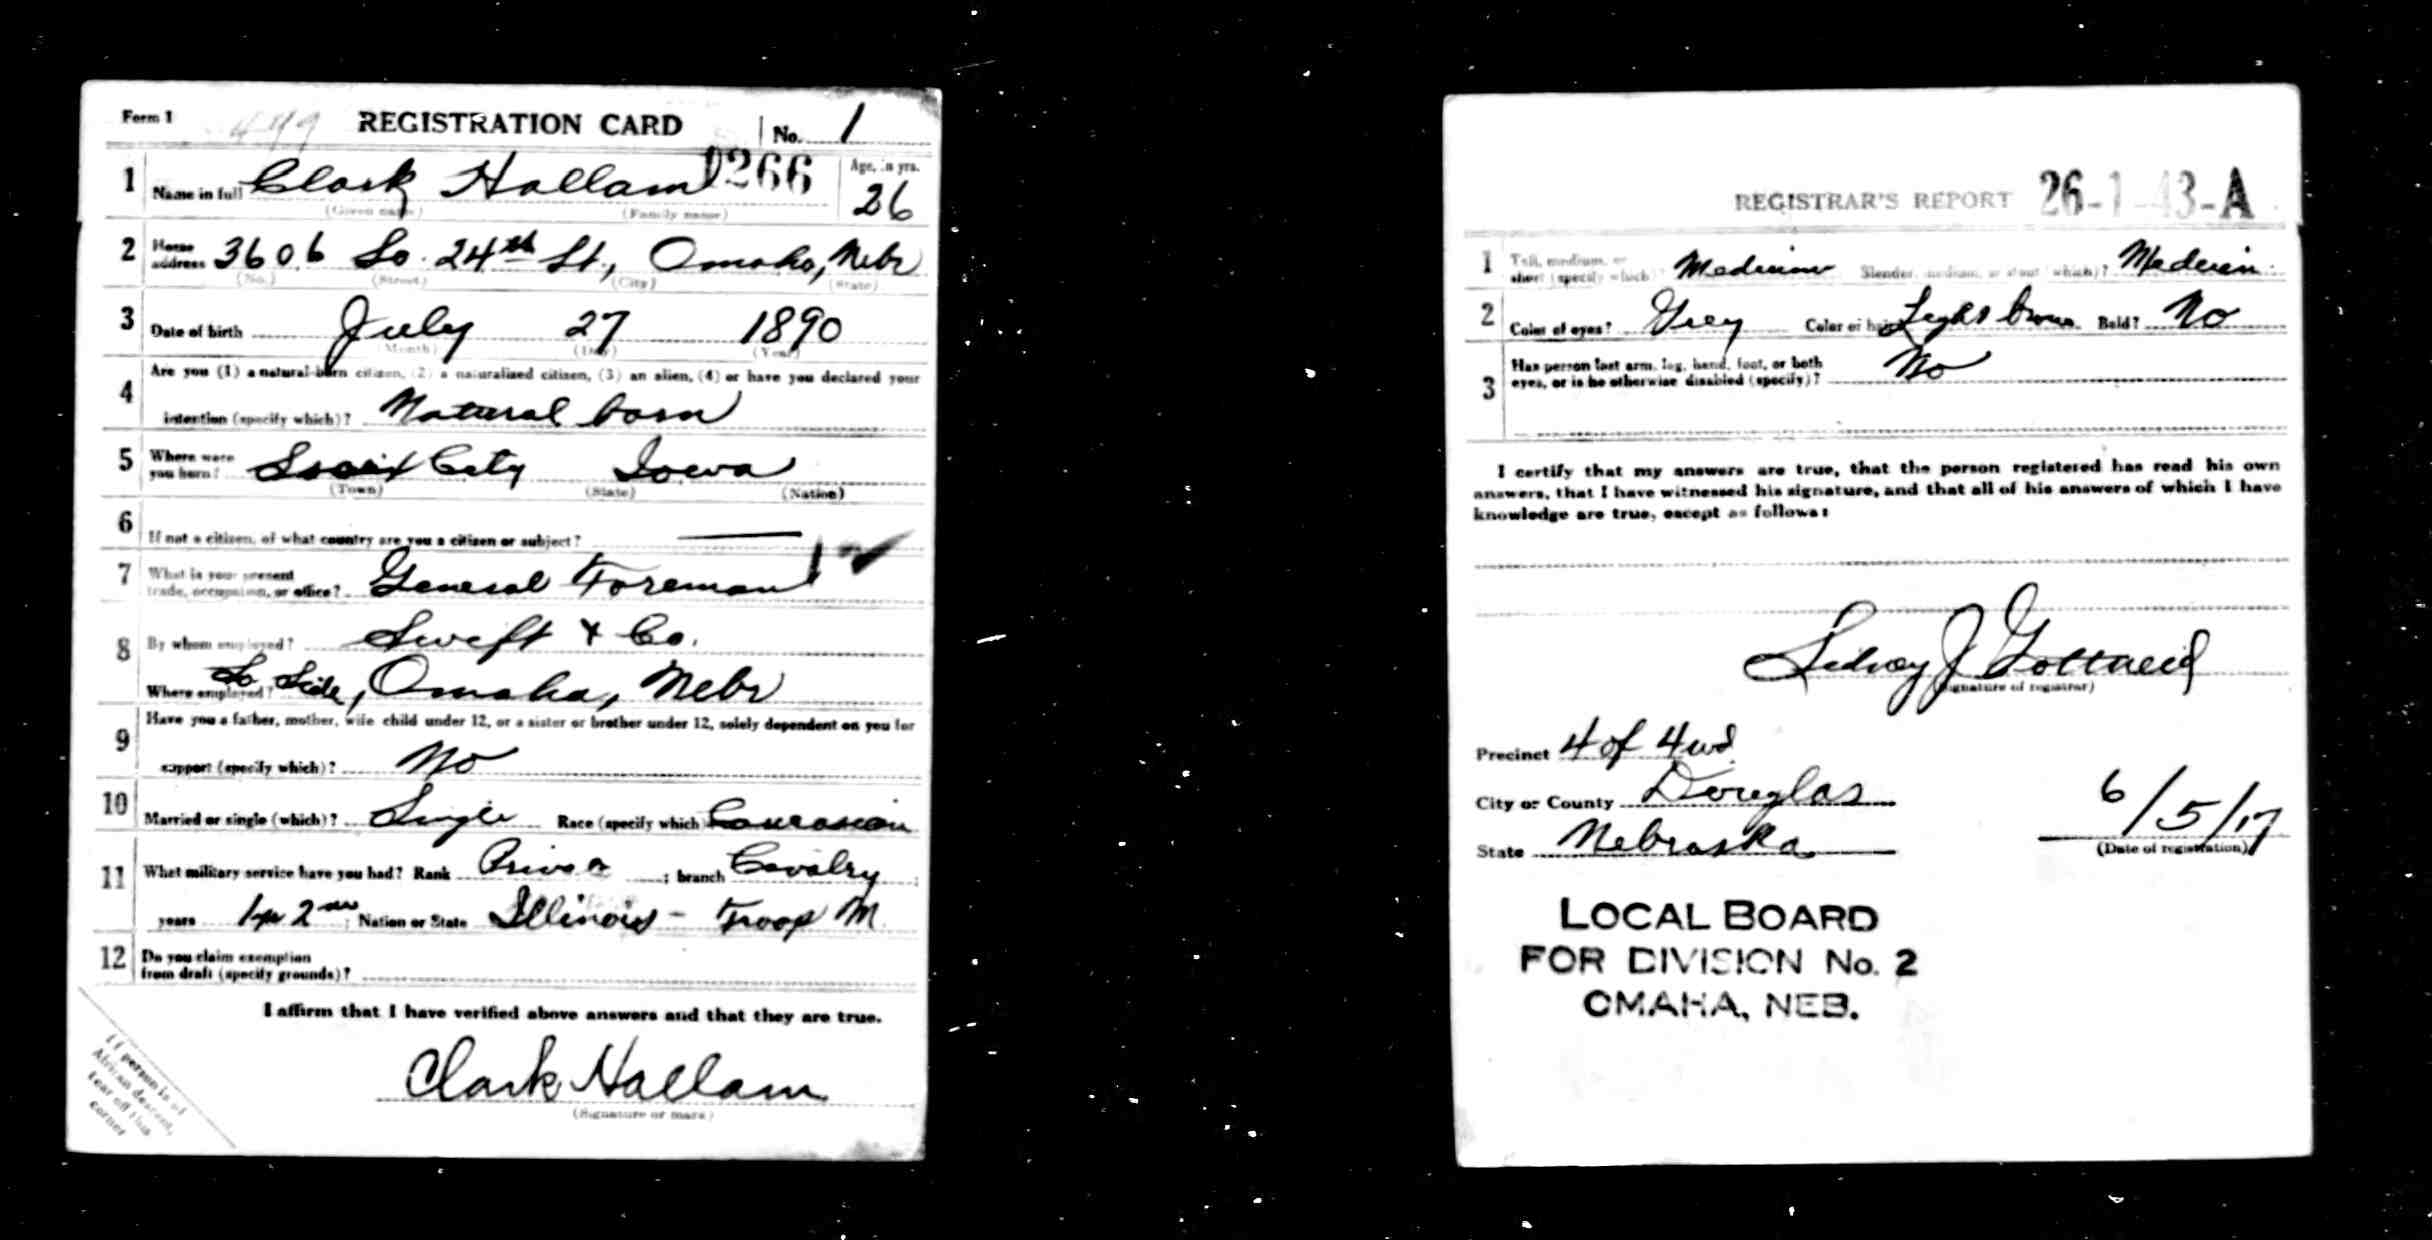 Form 1 449 REGISTRATION CARD No. 1
1 Name in full Clark Hallam 266 Age, in yrs. 26
(Given name) (Family name)
2 Home address 3606 So. 24th St., Omaha, Nebr
(No.) (Street) (City) (State)
3 Date of birth July 27 1890
(Month) (Day) (Year)
4 Are you (1) a natural-born citizen, (2) a naturalized citizen, (3) an alien, (4) or have you declared your
intention (specify which)? Natural born
5 Where were you born? Sioux City Iowa
(Town) (State) (Nation)
6 If not a citizen, of what country are you a citizen or subject?
7 What is your present
trade, occupation, or office? General Foreman
8 By whom employed? Swift & Co.
Where employed? So Side, Omaha, Nebr
9 Have you a father, mother, wife child under 12, or a sister or brother under 12, solely dependent on you for
support (specify which)? No
10 Married or single (which)? Single Race (specify which) Caucasian
11 What military service have you had? Rank ; branch Cavalry ;
years 2 ; Nation or State Illinois - Troop M.
12 Do you claim exemption
from draft (specify grounds)?
I affirm that I have verified above answers and that they are true.
Clark Hallam
(Signature or mark)
If person is of
African descent,
tear off this
corner
REGISTRAR'S REPORT 26-1-43-A
1 Tall, medium, or
short (specify which)? Medium Slender, medium, or stout (which)? Medium
2 Color of eyes? Grey Color of hair Light brown Bald? No
3 Has person lost arm, leg, hand, foot, or both
eyes, or is he otherwise disabled (specify)? No
I certify that my answers are true, that the person registered has read his own
answers, that I have witnessed his signature, and that all of his answers of which I have
knowledge are true, except as follows:
Sidney J
(Signature of registrar)
Precinct 4 of 4 wd.
City or County Douglas
State Nebraska 6/5/17
(Date of registration)
LOCAL BOARD
FOR DIVISION No. 2
OMAHA, NEB.